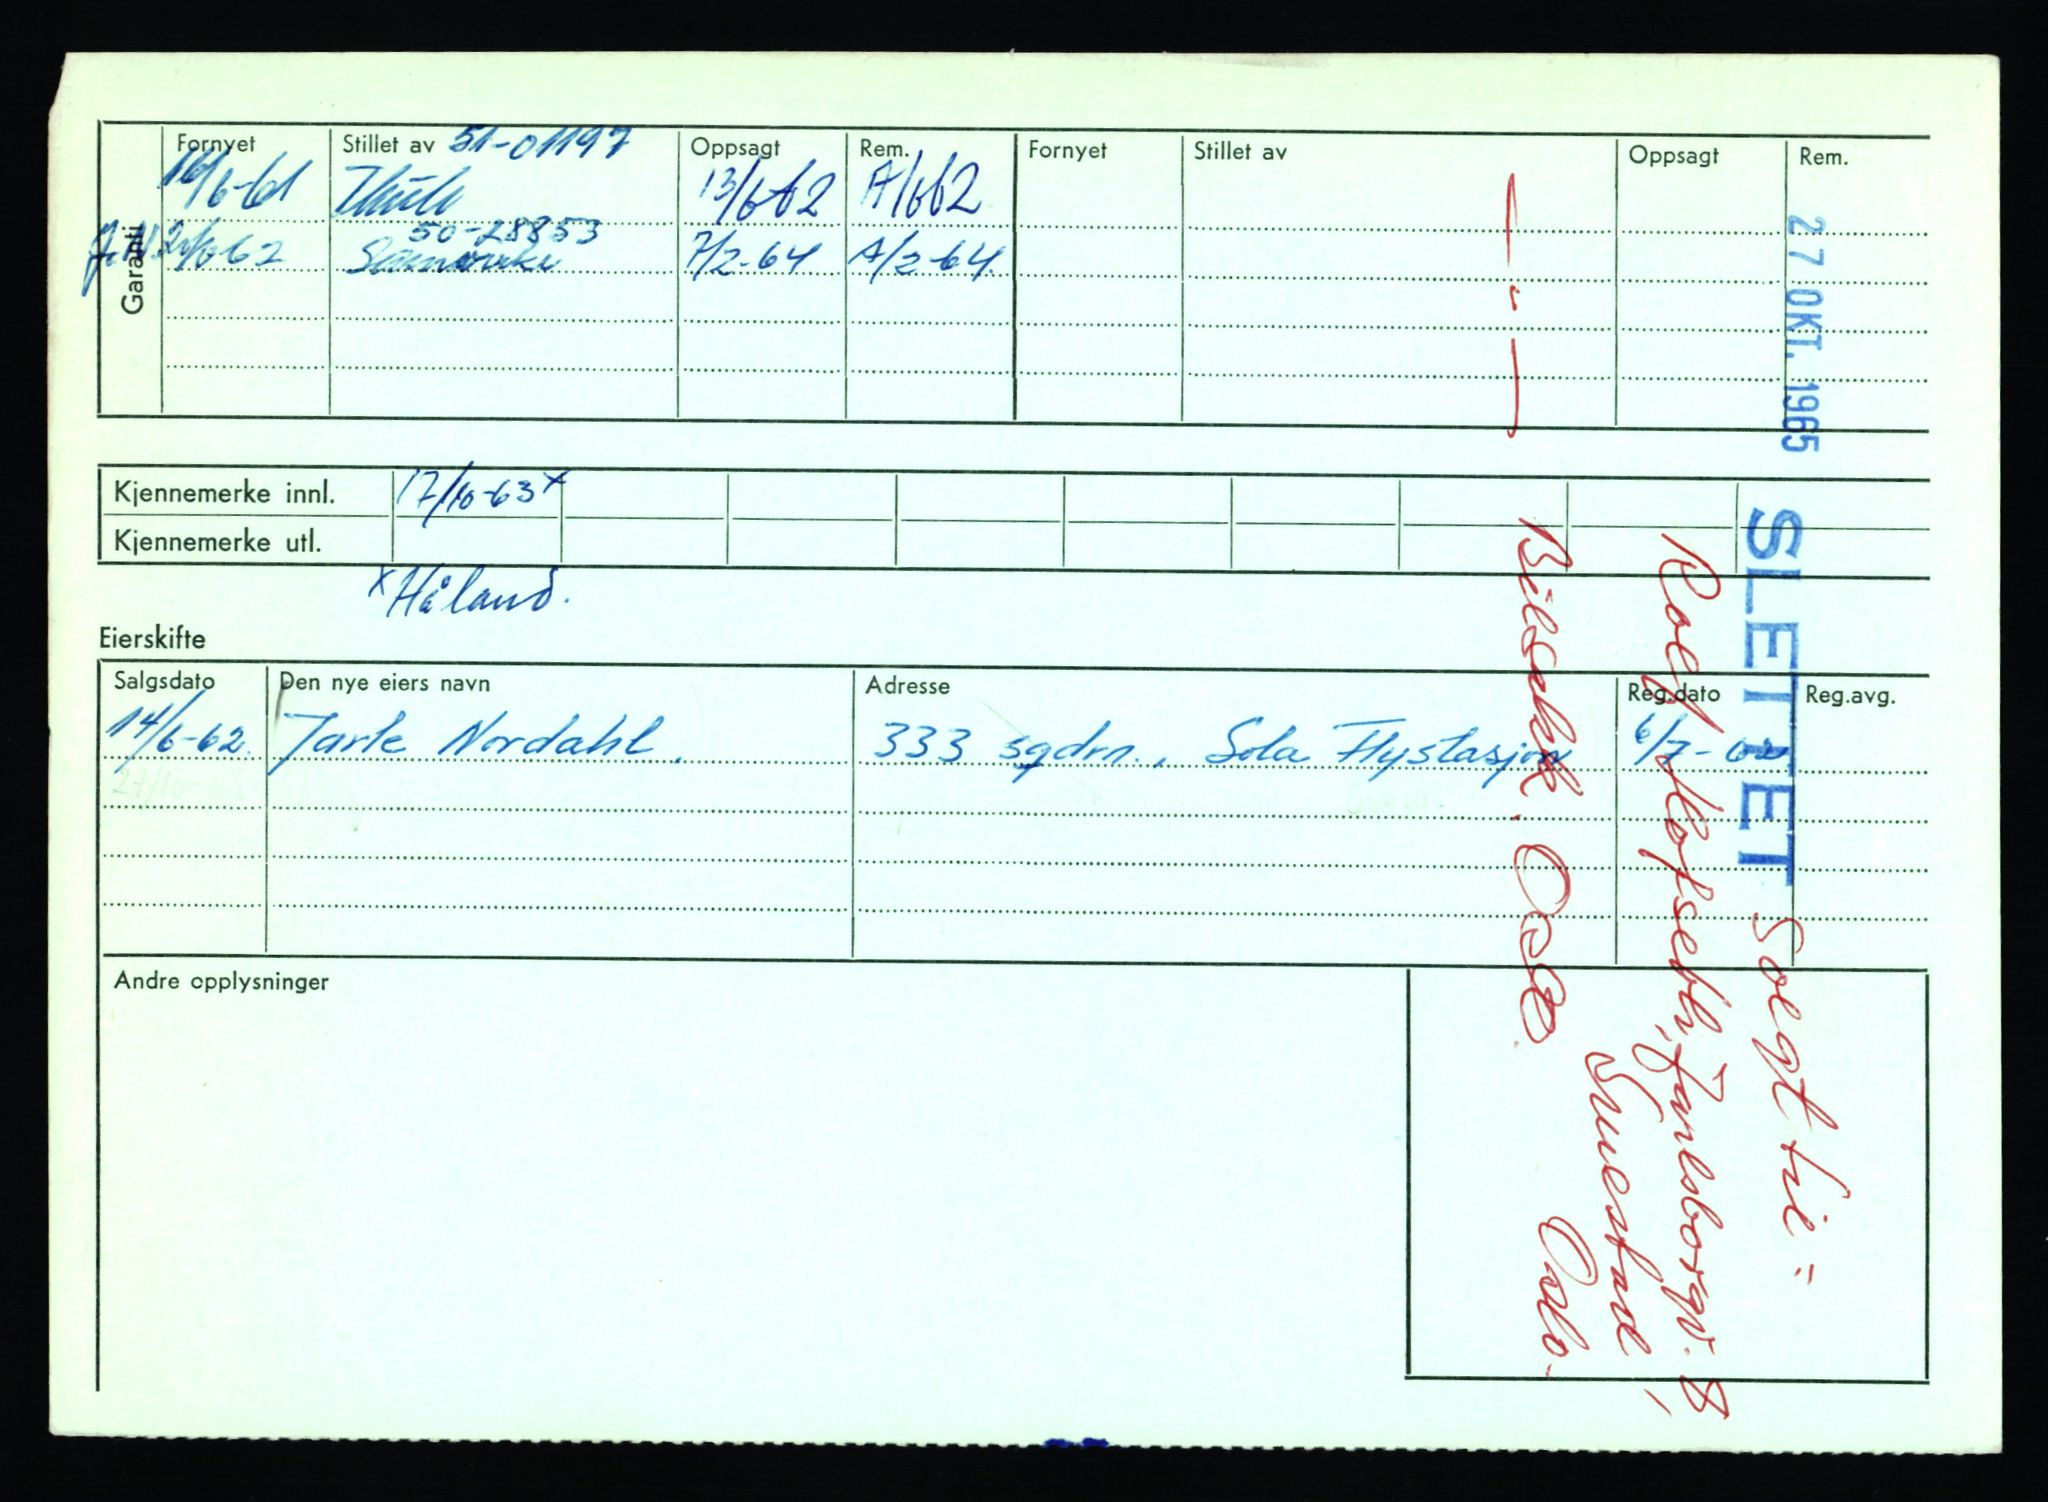 Garanti
Fornyet Stillet av 51-01197 Oppsagt Rem. Fornyet Stillet av Oppsagt Rem.
16/6-61 13/6-62 A/6 62
J.N. 21/6-62 50-28853 7/2-64 A/2-64.
Kjennemerke innl. 17/10-63 x
Kjennemerke utl.
x Håland.
Eierskifte
Salgsdato Den nye eiers navn Adresse Reg.dato Reg.avg.
14/6-62. Jarle Nordahl. 333 sqdrn., Sola Flystasjon 6/7-62
27/10-65
Andre opplysninger
27 OKT. 1965
SLETTET
Solgt til:
Rolf Jarlsborgv. 8
Oslo.
Bilsakk. Oslo.